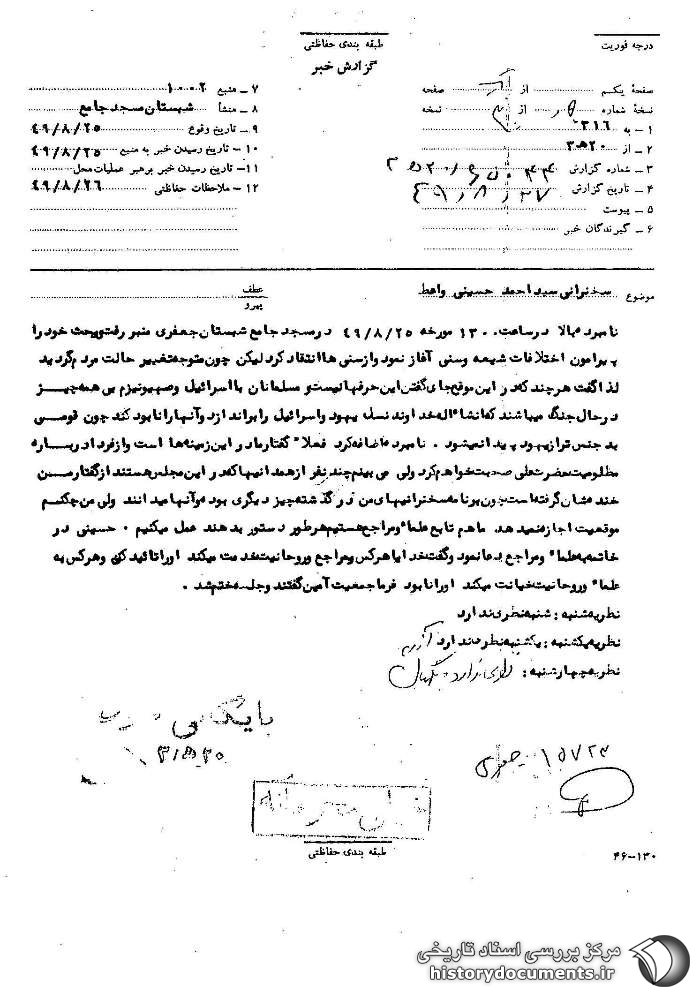 درجه فوریت
طبقه بندی حفاظتی
گزارش خبر
صفحهٔ یکم از صفحه
نسخهٔ شماره از نسخه
۱ - به ۳۱۶
۲ - از ۳هـ۲۰
۳ - شماره گزارش
۴ - تاریخ گزارش ۴۹/۸/۲۷
۵ - پیوست
۶ - گیرندگان خبر
۷ - منبع ۱۰۰۰۲
۸ - منشأ شبستان مسجد جامع
۹ - تاریخ وقوع ۴۹/۸/۲۵
۱۰ - تاریخ رسیدن خبر به منبع ۴۹/۸/۲۵
۱۱ - تاریخ رسیدن خبر برهبر عملیات محل
۱۲ - ملاحظات حفاظتی ۴۹/۸/۲۶
موضوع سخنرانی سید احمد حسینی واعظ
عطف
پیرو
نامبرده بالا در ساعت ۱۳۰۰ مورخه ۴۹/۸/۲۵ در مسجد جامع شبستان جعفری منبر رفته و بحث خود را
پیرامون اختلافات شیعه و سنی آغاز نمود و از سنی ها انتقاد کرد لیکن چون متوجه تغییر حالت مردم گردید
لذا گفت هر چند که در این موقع جای گفتن این حرفها نیست و مسلمانان با اسرائیل و صهیونیزم بی همه چیز
در حال جنگ میباشند که انشاءاله خداوند نسل یهود و اسرائیل را براندازد و آنها را نابود کند چون قومی
بد جنس تر از یهود پیدا نمیشود . نامبرده اضافه کرد فعلا گفتار ما در این زمینه ها است و از فردا در باره
مظلومیت حضرت علی صحبت خواهم کرد ولی می بینم چند نفر از همدانیها که در این مجلس هستند از گفتار من
خنده شان گرفته است چون برنامه سخنرانیهای من در گذشته چیز دیگری بود و آنها میدانند ولی من چکنم
موقعیت اجازه نمیدهد ما هم تابع علماء و مراجع هستیم هر طور دستور بدهند عمل میکنیم . حسینی در
خاتمه به علماء و مراجع دعا نمود و گفت خدایا هرکس و مراجع و روحانیت خدمت میکند او را تائید کن و هرکس به
علماء و روحانیت خیانت میکند او را نابود فرما جمعیت آمین گفتند و جلسه ختم شد .
نظریه شنبه : شنبه نظری ندارد
نظریه یکشنبه : یکشنبه نظری ندارد
نظریه چهارشنبه :
بایگانی
طبقه بندی حفاظتی
۴۶-۱۳۰
مرکز بررسی اسناد تاریخی
historydocuments.ir